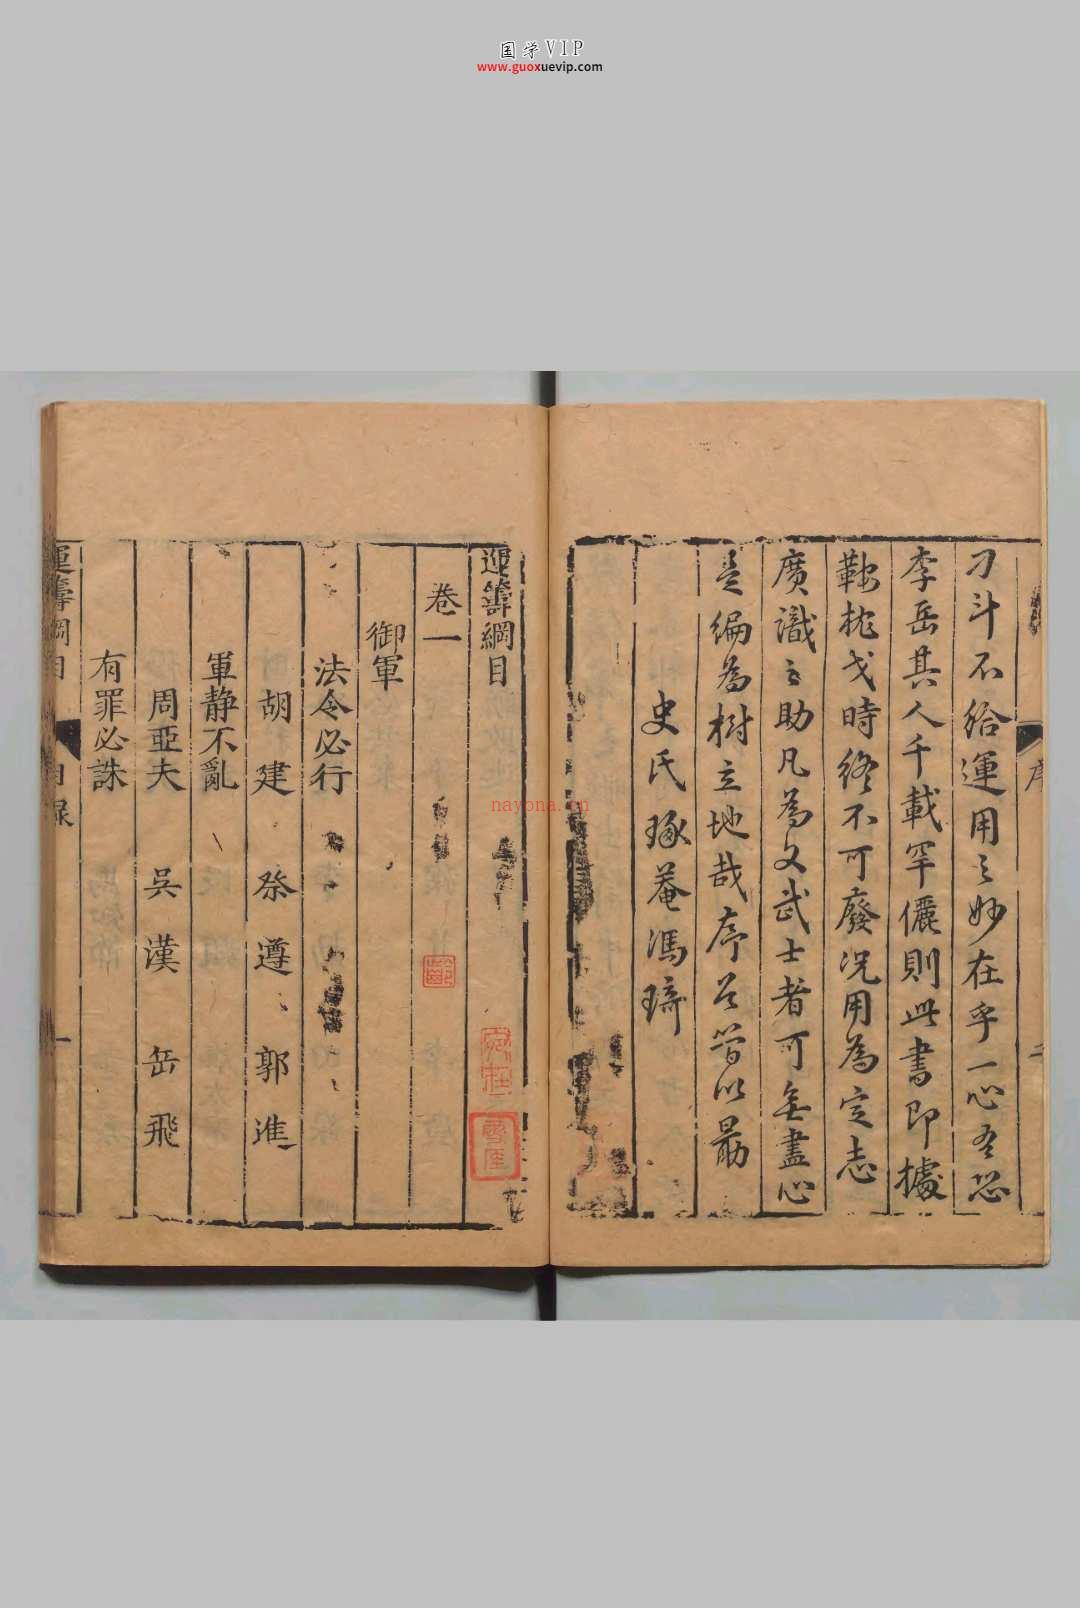 国学VIP
www.guoxuevip.com
刁斗不給運用之妙在乎一心吾恐
李岳其人千載罕儷則此書即據
鞍枕戈時終不可廢況用為定志
廣識之助凡為文武士者可無盡心
是編為樹立地哉序以質以勗
史氏琢菴馮琦
序
二
運籌綱目
卷一
御軍
法令必行
胡建 祭遵 郭進
軍静不亂
周亞夫 吳漢 岳飛
有罪必誅
運籌綱目
目録
一
nayona.cn